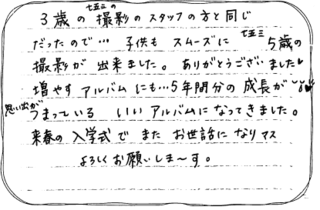 3歳の七五三の撮影のスタッフの方と同じ
だったので… 子供もスムーズに七五三5歳の
撮影が出来ました。ありがとうございました
増やすアルバムにも…5年間分の成長が
思い出がつまっている いいアルバムになってきました。
来春の入学式でまたお世話になりマス
よろしくお願いしま〜す。